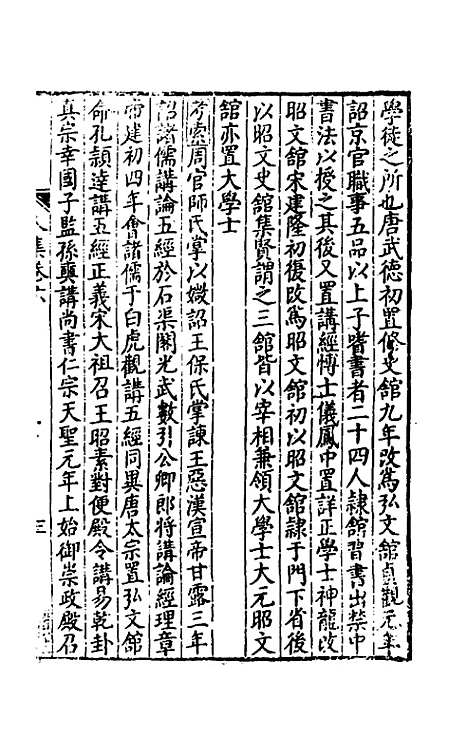 學徒之所也唐武德初置修文館九年改爲弘文館貞觀元年
詔京官職事五品以上子嗜書者二十四人隸館習書出禁中
書法以授之其後又置講經博士儀鳳中置詳正學士神龍改
昭文館宋建隆初復改爲昭文館初以昭文館隸于門下省後
以昭文史館集賢謂之三館皆以宰相兼領大學士大元昭文
館亦置大學士
考索周官師氏掌以媺詔王保氏掌諫王惡漢宣帝甘露三年
詔諸儒講論五經於石渠閣光武數引公卿郎將講論經理章
帝建初四年會諸儒于白虎觀講五經同異唐太宗置弘文館
命孔頴達講五經正義宋太祖召王昭素對便殿令講易乾卦
真宗幸國子監孫奭講尚書仁宗天聖元年上始御崇政殿召
集卷六
三